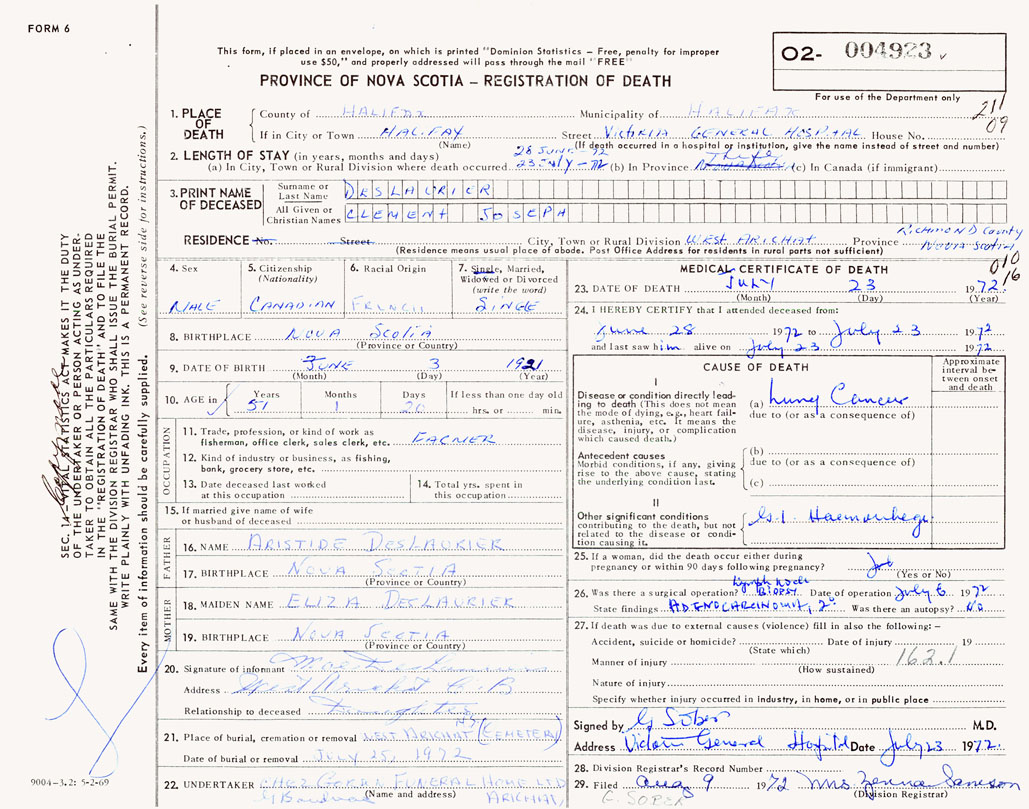 FORM 6
This form, if placed in an envelope, on which is printed "Dominion Statistics – Free, penalty for improper
use $50," and properly addressed will pass through the mail "FREE"
PROVINCE OF NOVA SCOTIA – REGISTRATION OF DEATH
O2- 004923
For use of the Department only
211
09
1. PLACE OF DEATH
County of HALIFAX Municipality of HALIFAX
If in City or Town HALIFAX Street VICTORIA GENERAL HOSPITAL House No.
(Name) (If death occurred in a hospital or institution, give the name instead of street and number)
2. LENGTH OF STAY (in years, months and days) 28 JUNE - 72
(a) In City, Town or Rural Division where death occurred 23 JULY - 72 (b) In Province (c) In Canada (if immigrant)
3. PRINT NAME OF DECEASED
Surname or Last Name DESLAURIER
All Given or Christian Names CLEMENT JOSEPH
RICHMOND County
RESIDENCE No. Street City, Town or Rural Division WEST ARICHAT Province NOVA SCOTIA
(Residence means usual place of abode. Post Office Address for residents in rural parts not sufficient)
010
16
4. Sex MALE
5. Citizenship (Nationality) CANADIAN
6. Racial Origin FRENCH
7. Single, Married, Widowed or Divorced (write the word) SINGLE
8. BIRTHPLACE NOVA SCOTIA
(Province or Country)
9. DATE OF BIRTH JUNE 3 1921
(Month) (Day) (Year)
10. AGE in Years 51 Months 1 Days 20 If less than one day old hrs. or min.
OCCUPATION
11. Trade, profession, or kind of work as
fisherman, office clerk, sales clerk, etc. FARMER
12. Kind of industry or business, as fishing,
bank, grocery store, etc.
13. Date deceased last worked
at this occupation
14. Total yrs. spent in
this occupation
15. If married give name of wife
or husband of deceased
FATHER
16. NAME ARISTIDE DESLAURIER
17. BIRTHPLACE NOVA SCOTIA
(Province or Country)
MOTHER
18. MAIDEN NAME ELIZA DESLAURIER
19. BIRTHPLACE NOVA SCOTIA
(Province or Country)
20. Signature of informant
Address West Arichat C.B
Relationship to deceased
21. Place of burial, cremation or removal WEST ARICHAT NS (CEMETERY)
Date of burial or removal JULY 25, 1972
22. UNDERTAKER FUNERAL HOME LTD
(Name and address) ARICHAT
MEDICAL CERTIFICATE OF DEATH
23. DATE OF DEATH JULY 23 1972
(Month) (Day) (Year)
24. I HEREBY CERTIFY that I attended deceased from:
June 28 1972 to July 23 1972
and last saw him alive on July 23 1972
CAUSE OF DEATH
Approximate interval between onset and death
I
Disease or condition directly leading to death (This does not mean the mode of dying, e.g., heart failure, asthenia, etc. It means the disease, injury, or complication which caused death.)
(a) Lung Cancer
due to (or as a consequence of)
Antecedent causes
Morbid conditions, if any, giving rise to the above cause, stating the underlying condition last.
(b)
due to (or as a consequence of)
(c)
II
Other significant conditions
contributing to the death, but not related to the disease or condition causing it.
G.I. Haemorrhage
25. If a woman, did the death occur either during
pregnancy or within 90 days following pregnancy?
(Yes or No)
26. Was there a surgical operation? Lymph node BIOPSY Date of operation July 6 1972
State findings ADENOCARCINOMA, 2° Was there an autopsy? NO
27. If death was due to external causes (violence) fill in also the following:–
Accident, suicide or homicide? Date of injury 19
(State which)
Manner of injury 162.1
(How sustained)
Nature of injury
Specify whether injury occurred in industry, in home, or in public place
Signed by G Sober M.D.
Address Victoria General Hospital Date July 23 1972.
28. Division Registrar's Record Number
29. Filed Aug 9 1972 Mrs
(Division Registrar)
SEC. 14–VITAL STATISTICS ACT MAKES IT THE DUTY
OF THE UNDERTAKER OR PERSON ACTING AS UNDER-
TAKER TO OBTAIN ALL THE PARTICULARS REQUIRED
IN THE "REGISTRATION OF DEATH" AND TO FILE THE
SAME WITH THE DIVISION REGISTRAR WHO SHALL ISSUE THE BURIAL PERMIT.
WRITE PLAINLY WITH UNFADING INK. THIS IS A PERMANENT RECORD.
Every item of information should be carefully supplied. (See reverse side for instructions.)
9004-3.2: 5-2-69